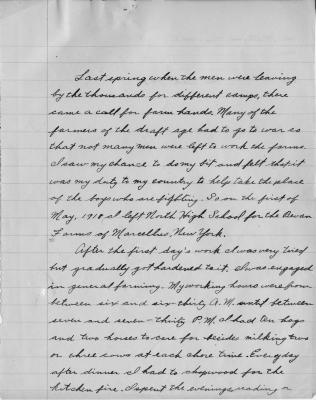 Last spring when the men were leaving
by the thousands for different camps, there
came a call for farm hands. Many of the
farmers of the draft age had to go to war so
that not many men were left to work the farms.
I saw my chance to do my bit and felt that it
was my duty to my country to help take the place
of the boys who are fighting. So on the first of
May, 1918 I left North High School for the
Farms of Marcellus, New York.
After the first day's work I was very tired
but gradually got hardened to it. I was engaged
in general farming. My working hours were from
between six and six-thirty A.M. until between
seven and seven-thirty P.M. I had ten hogs
and two horses to care for besides milking two
or three cows at each chore time. Every day
after dinner I had to chop wood for the
kitchen fire. I spent the evenings reading or